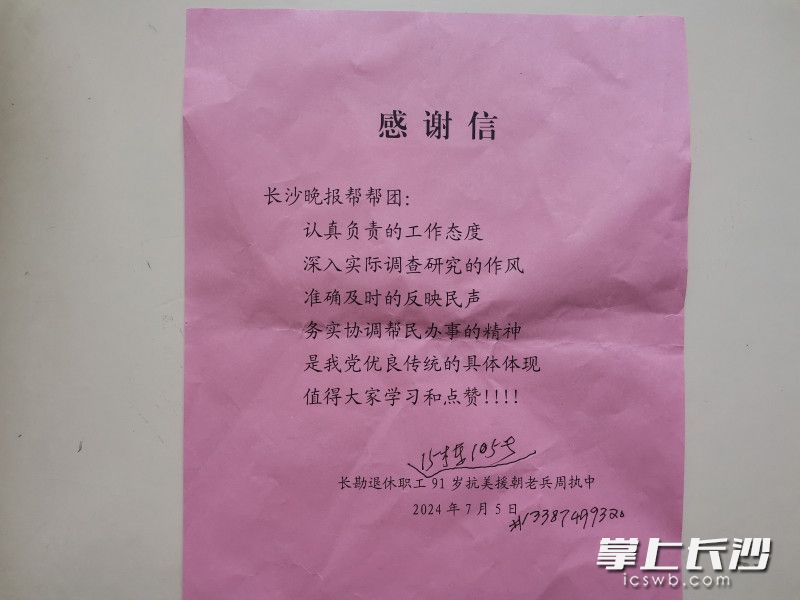 感谢信
长沙晚报帮帮团：
认真负责的工作态度
深入实际调查研究的作风
准确及时的反映民声
务实协调帮民办事的精神
是我党优良传统的具体体现
值得大家学习和点赞！！！！
15栋105号
长勘退休职工91岁抗美援朝老兵周执中
2024年7月5日
掌上长沙
icswb.com